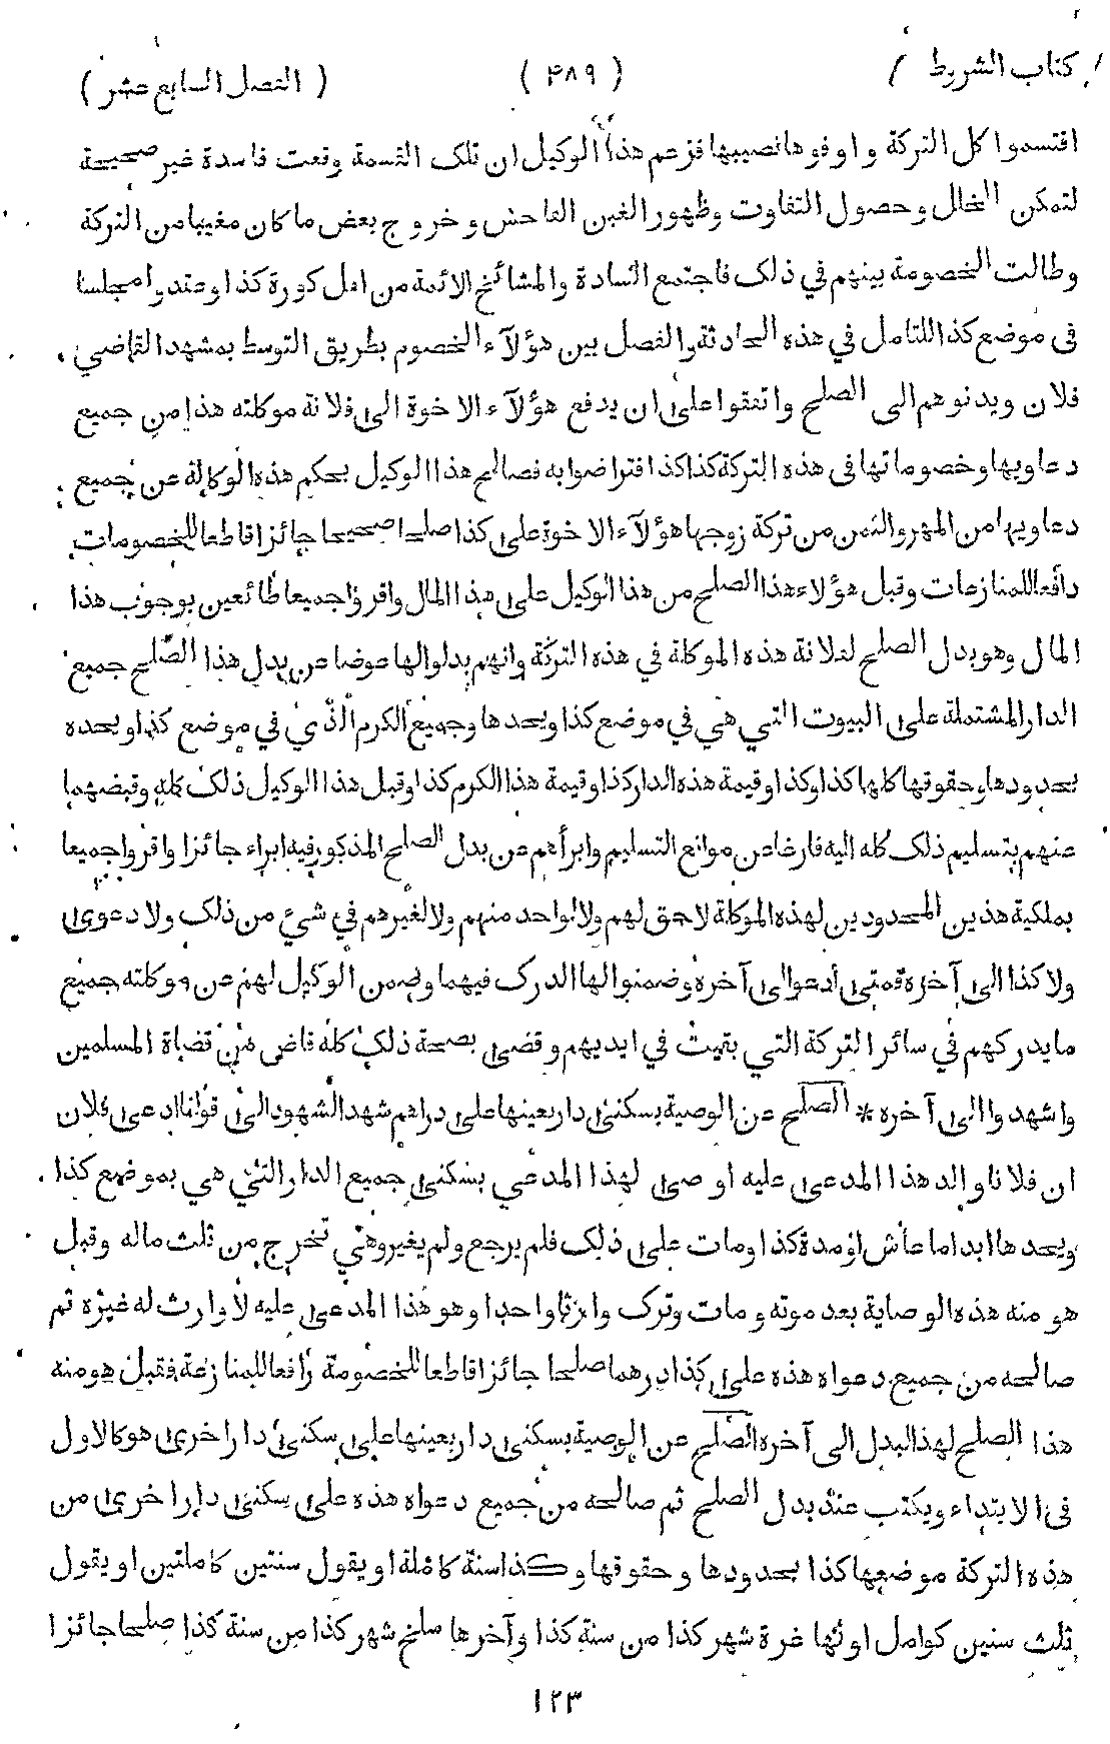 كتاب الشروط ( ۴۸۹ ) ( الفصل السابع عشر )
اقتسموا كل التركة واوفوها نصيبها فزعم هذا الوكيل ان تلك القسمة وقعت فاسدة غير صحيحة
لتمكن الخلل وحصول التفاوت وظهور الغبن الفاحش وخروج بعض ما كان مغيبا من التركة
وطالت الخصومة بينهم في ذلك فاجتمع السادة والمشائخ الائمة من اهل كورة كذا وعقدوا مجلسا
فى موضع كذا للتامل في هذه الحادثة والفصل بين هؤلآء الخصوم بطريق التوسط بمشهد القاضي
فلان ويدنوهم الى الصلح واتفقوا على ان يدفع هؤلآء الاخوة الى فلانة موكلته هذا من جميع
دعاويها وخصوماتها فى هذه التركة كذا كذا فتراضوا به فصالح هذا الوكيل بحكم هذه الوكالة عن جميع
دعاويها من المهر والثمن من تركة زوجها هؤلآء الاخوة على كذا صلحا صحيحا جائزا قاطعا للخصومات
دافعا للمنازعات وقبل هؤلاء هذا الصلح من هذا الوكيل على هذا المال واقروا جميعا طائعين بوجوب هذا
المال وهو بدل الصلح لفلانة هذه الموكلة في هذه التركة وانهم بدلوا لها عوضا عن بدل هذا الصلح جميع
الدار المشتملة على البيوت التي هي في موضع كذا ويحدها وجميع الكرم الذي في موضع كذا ويحده
بحدودها وحقوقها كلها كذا وكذا وقيمة هذه الدار كذا وقيمة هذا الكرم كذا وقبل هذا الوكيل ذلك كله وقبضهما
عنهم بتسليم ذلك كله اليه فارغا عن موانع التسليم وابرأهم عن بدل الصلح المذكور فيه ابراء جائزا واقروا جميعا
بملكية هذين المحدودين لهذه الموكلة لا حق لهم ولا لواحد منهم ولا لغيرهم في شيء من ذلك ولا دعوى
ولا كذا الى آخره فمتى ادعوا الى آخره وضمنوا لها الدرك فيهما وضمن الوكيل لهم عن موكلته جميع
ما يدركهم في سائر التركة التي بقيت في ايديهم وقضى بصحة ذلك كله قاض من قضاة المسلمين
واشهدوا الى آخره * الصلح عن الوصية بسكنى دار بعينها على دراهم شهد الشهود الى قولنا ادعى فلان
ان فلانا والد هذا المدعى عليه اوصى لهذا المدعي بسكنى جميع الدار التي هي بموضع كذا
ويحدها ابدا ما عاش او مدة كذا ومات على ذلك فلم يرجع ولم يغير وهي تخرج من ثلث ماله وقبل
هو منه هذه الوصاية بعد موته ومات وترك وارثا واحدا وهو هذا المدعى عليه لا وارث له غيره ثم
صالحه من جميع دعواه هذه على كذا درهما صلحا جائزا قاطعا للخصومة رافعا للمنازعة فقبل هو منه
هذا الصلح لهذا البدل الى آخره الصلح عن الوصية بسكنى دار بعينها على سكنى دار اخرى هو كالاول
فى الابتداء ويكتب عند بدل الصلح ثم صالحه من جميع دعواه هذه على سكنى دار اخرى من
هذه التركة موضعها كذا بحدودها وحقوقها وكذا سنة كاملة او يقول سنتين كاملتين او يقول
ثلث سنين كوامل اولها غرة شهر كذا من سنة كذا وآخرها سلخ شهر كذا من سنة كذا صلحا جائزا
۱۲۳